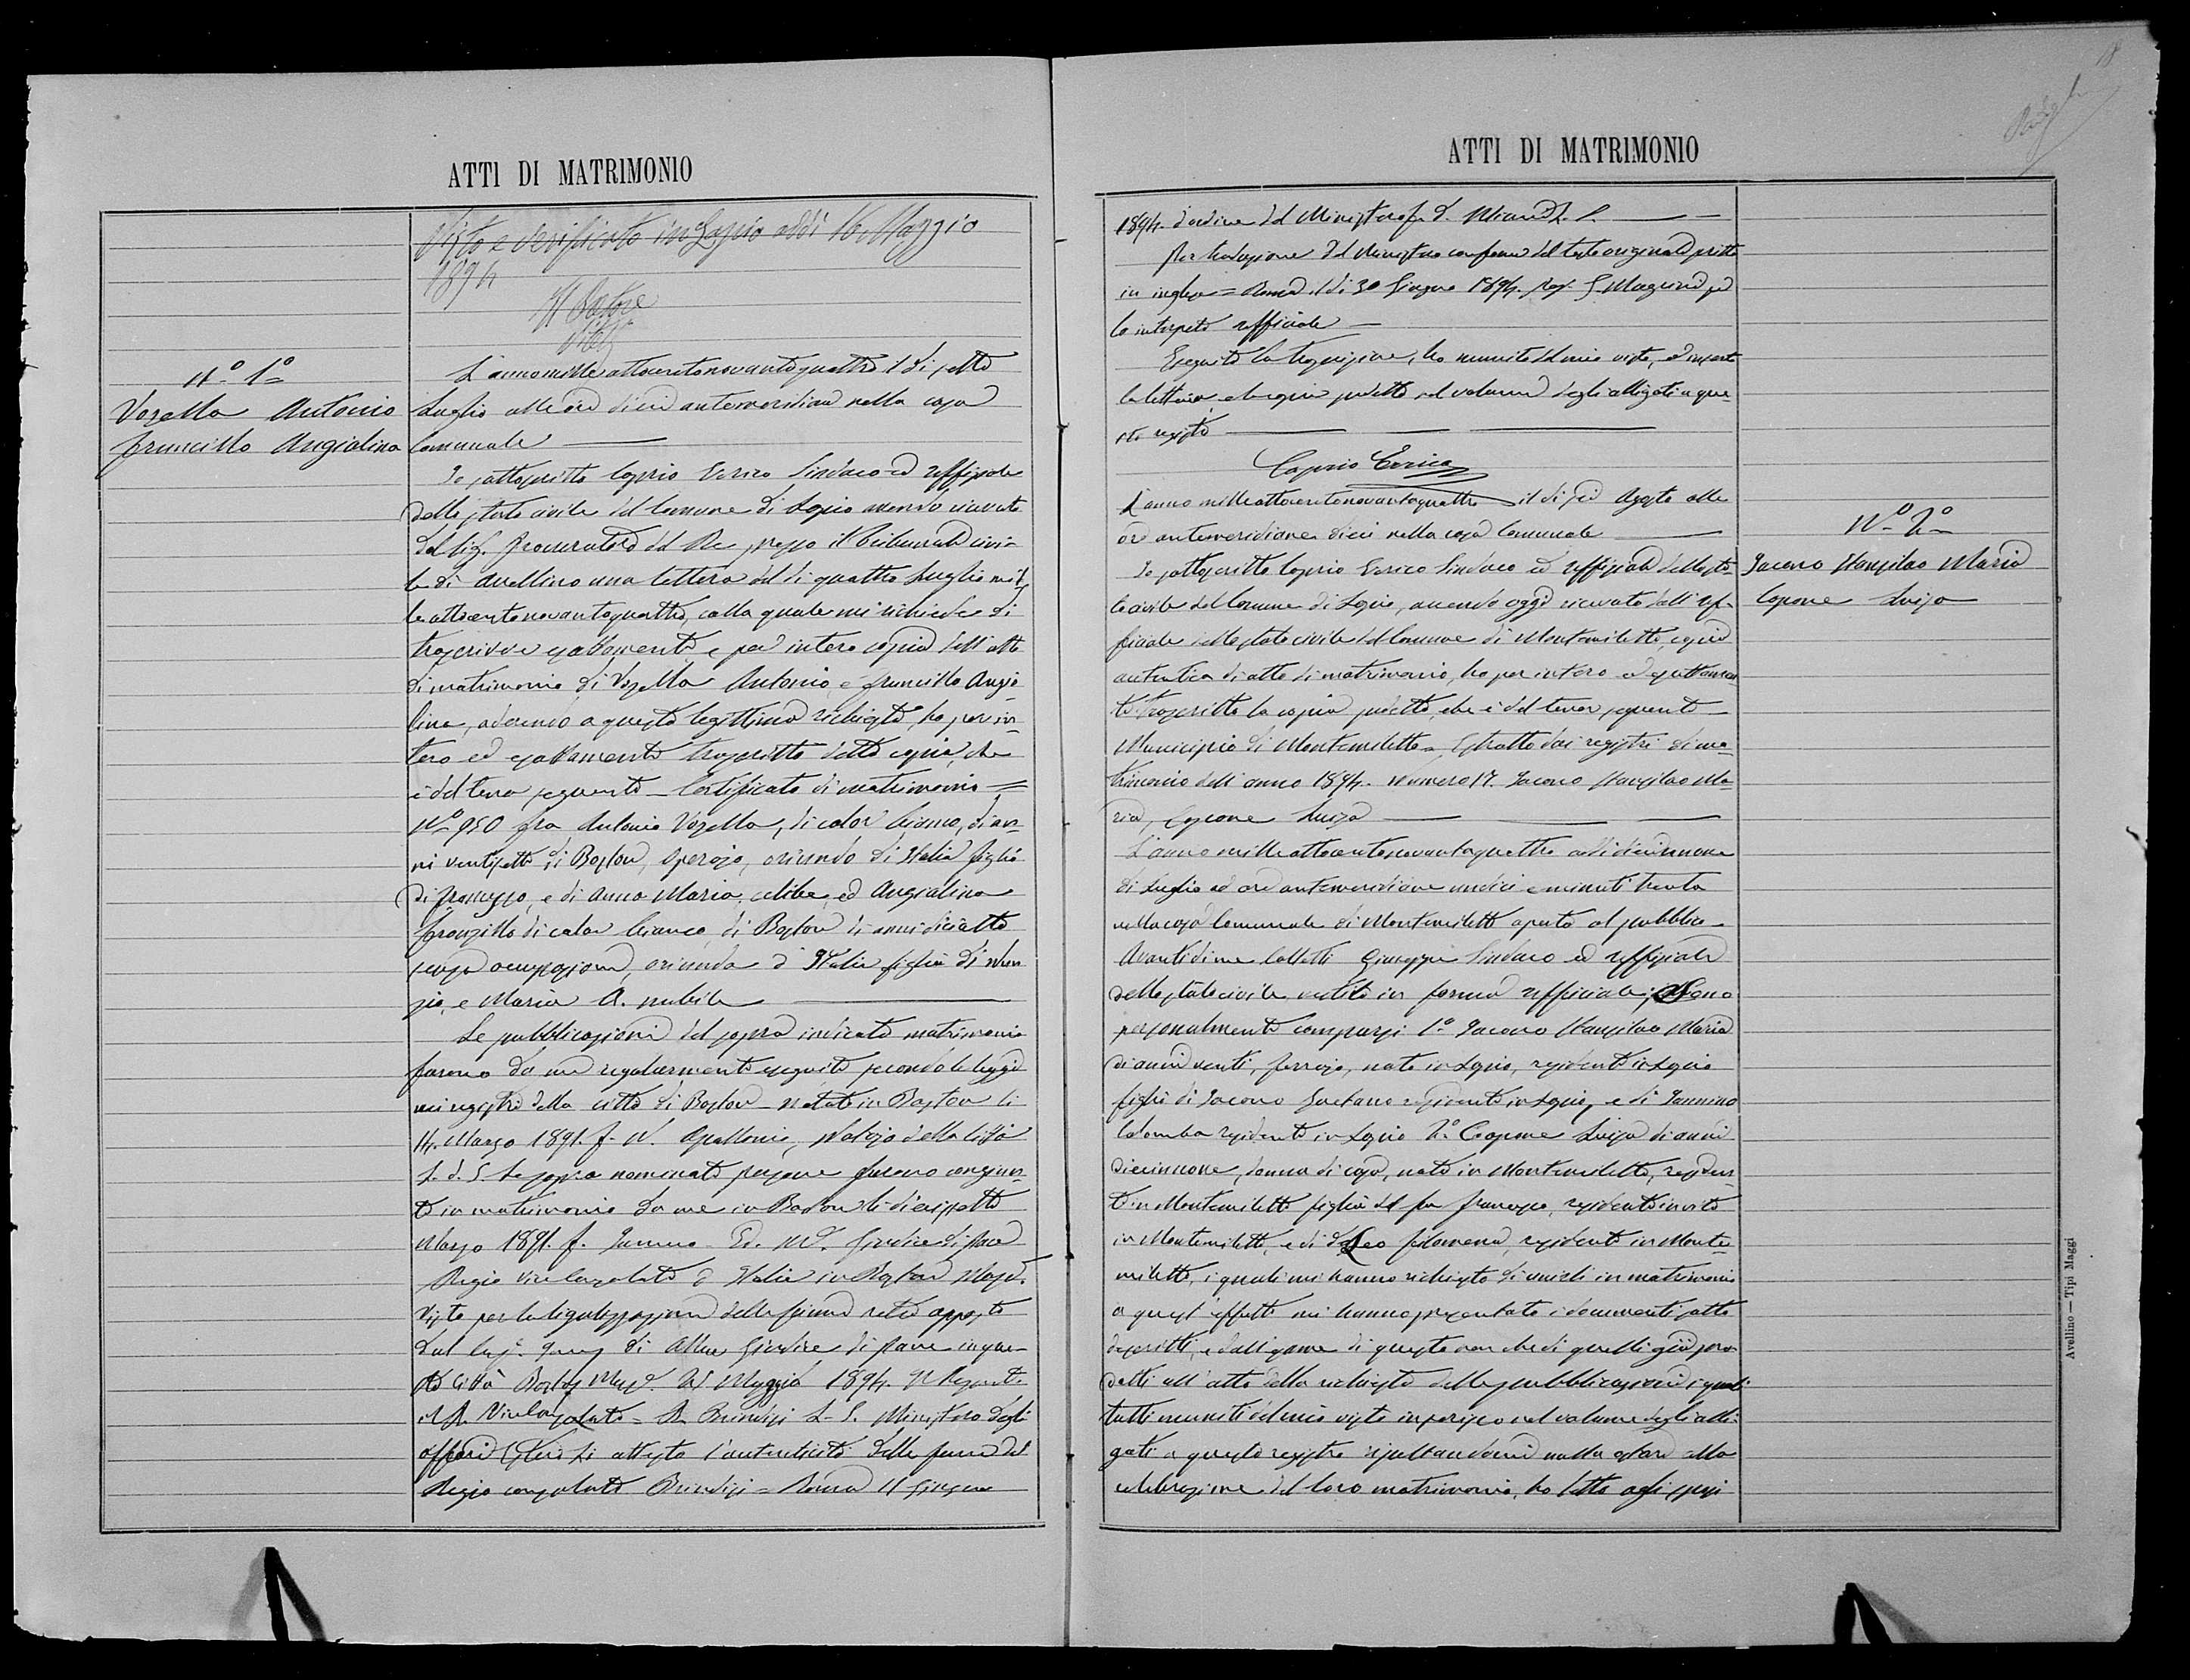 ATTI DI MATRIMONIO
Visto e verificato in Lapio addì 16 Maggio
1894
Il Pretore
N.º 1º
Vozella Antonio
Franciello Angiolina
L'anno mille ottocentonovantaquattro il dì sette
Luglio alle ore dieci antimeridiane nella casa
Comunale
Io sottoscritto Caprio Errico Sindaco ed uffiziale
dello stato civile del Comune di Lapio avendo ricevuto
dal Sig. Procuratore del Re presso il Tribunale civi-
le di Avellino una lettera del dì quattro Luglio mil
le ottocentonovantaquattro, colla quale mi richiede di
trascrivere esattamente e per intero copia dell'atto
di matrimonio di Vozella Antonio e Franciello Angio
lina, aderendo a questa legittima richiesta, ho per in-
tero ed esattamente trascritto detta copia, che
è del tenor seguente - Certificato di matrimonio =
Nº 950 fra Antonio Vozella, di color bianco, di an-
ni ventisette di Boston, operajo, oriundo di Italia figlio
di Francesco, e di Anna Maria, celibe, ed Angiolina
di color bianco, di Boston di anni diciotto
senza occupazione, oriunda d'Italia figlia di Nun
zio, e Maria A. nubile
Le pubblicazioni del sopra indicato matrimonio
furono da me regolarmente eseguite secondo le leggi
nei registri della città di Boston - Notato in Boston li
14. Marzo 1891. f. N. Apollonio, della Città
L. d. S. Le sopra nominate persone furono congiun-
te in matrimonio da me in Boston li diciassette
Marzo 1891. f. Ed. Md. Giudice di pace
Regio vice Consolato d'Italia in Boston Mass.
Visto per la legalizzazione della firma retro apposta
dal di Giudice di pace in que-
sta Città Boston Mass. Maggio 1894. Il Reggente
il R. Vice Consolato = R. Brindisi L. S. Ministero degli
affari Esteri Si attesta l'autenticità della firma del
Regio consolato Brindisi = Roma 11 Giugno
ATTI DI MATRIMONIO
18
1894. d'ordine del Ministro f. L. S.
Per traduzione del Ministero conforme del testo originale scritto
in inglese = Roma, il dì 30 Giugno 1894. f.
lo interprete ufficiale
Eseguita la trascrizione, ho munito del mio visto, ed inserto
la lettera e la copia predetta nel volume degli allegati a que-
sto registro
Caprio Errico
L'anno mille ottocentonovantaquattro il dì Agosto alle
ore antimeridiane dieci nella casa Comunale
Io sottoscritto Caprio Errico Sindaco ed uffiziale dello sta-
to civile del Comune di Lapio, avendo oggi ricevuto dall'uf-
ficiale dello stato civile del Comune di Montemiletto, copia
autentica di atto di matrimonio, ho per intero ed esattamen
te trascritto la copia predetta, che è del tenor seguente -
Municipio di Montemiletto - Estratto dai registri di ma-
trimonio dell'anno 1894. numero 17. Iacono Stanislao Ma-
ria, Capone Luisa
L'anno mille ottocentonovantaquattro addì diciannove
di Luglio ad ore antimeridiane undici e minuti trenta
nella casa Comunale di Montemiletto aperta al pubblico -
Avanti di me Colletti Giuseppe Sindaco ed uffiziale
dello stato civile vestito in forma ufficiale, sono
personalmente comparsi 1º Iacono Stanislao Maria
di anni venti, nato in Lapio, residente in Lapio
figlio di Iacono Gaetano residente in Lapio, e di Iannino
Colomba residente in Lapio 2º Capone Luisa di anni
diciannove, donna di casa, nata in Montemiletto, residen-
te in Montemiletto figlia del fu Francesco, residente in vita
in Montemiletto, e di de Leo Filomena, residente in Monte-
miletto, i quali mi hanno richiesto di unirli in matrimonio
a quest'effetto mi hanno presentato i documenti sotto
descritti, e dall'esame di questi non che di quelli già pro-
dotti all'atto della richiesta delle pubblicazioni i quali
tutti muniti del mio visto inserisco nel volume degli alle-
gati a questo registro risultandomi nulla ostare alla
celebrazione del loro matrimonio, ho letto agli sposi
Nº 2º
Iacono Stanislao Maria
Capone Luisa
Avellino — Tipi Maggi